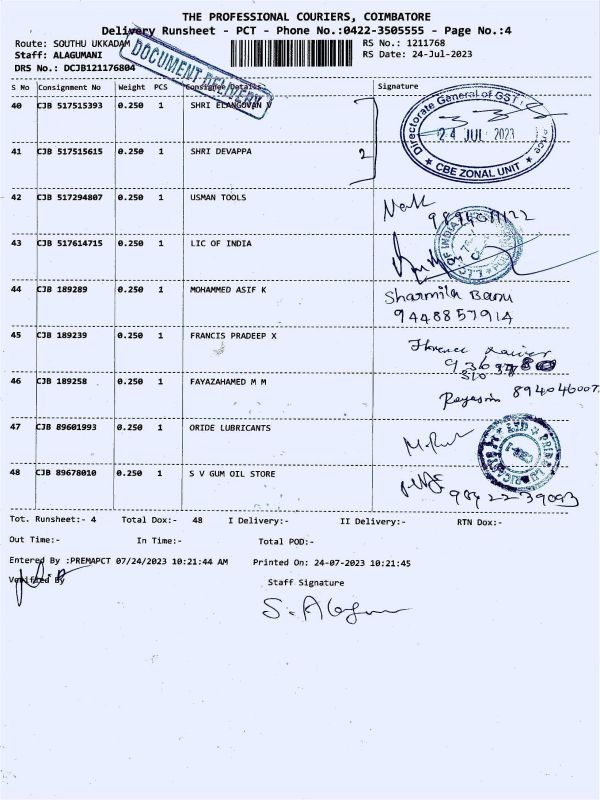 THE PROFESSIONAL COURIERS, COIMBATORE
Delivery Runsheet - PCT - Phone No.:0422-3505555 - Page No.:4
Route: SOUTHU UKKADAM
RS No.: 1211768
Staff: ALAGUMANI
RS Date: 24-Jul-2023
DRS No.: DCJB121176804
DOCUMENT DELIVERY
S No Consignment No Weight PCS Consignee Details Signature
40 CJB 517515393 0.250 1 SHRI ELANGOVAN V
Directorate General of GST
24 JUL 2023
★ CBE ZONAL UNIT ★
41 CJB 517515615 0.250 1 SHRI DEVAPPA
2
42 CJB 517294807 0.250 1 USMAN TOOLS
43 CJB 517614715 0.250 1 LIC OF INDIA
44 CJB 189289 0.250 1 MOHAMMED ASIF K
Sharmila Banu
9448857914
45 CJB 189239 0.250 1 FRANCIS PRADEEP X
46 CJB 189258 0.250 1 FAYAZAHAMED M M
47 CJB 89601993 0.250 1 ORIDE LUBRICANTS
48 CJB 89678010 0.250 1 S V GUM OIL STORE
9842239093
Tot. Runsheet:- 4 Total Dox:- 48 I Delivery:- II Delivery:- RTN Dox:-
Out Time:- In Time:- Total POD:-
Entered By :PREMAPCT 07/24/2023 10:21:44 AM Printed On: 24-07-2023 10:21:45
Verified By
Staff Signature